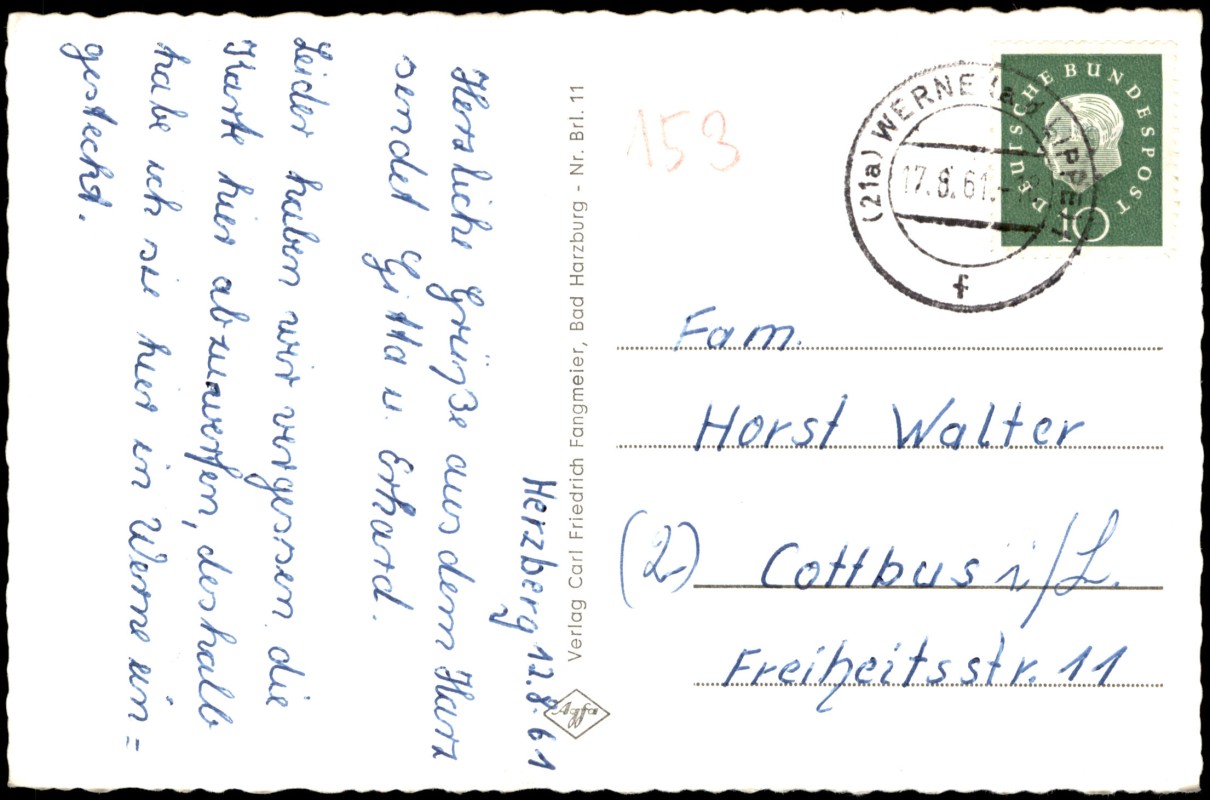 Herzberg 12.8.61
Herzliche Grüße aus dem Harz
sendet Gitta u. Erhard.
Leider haben wir vergessen die
Karte hier abzuwerfen, deshalb
habe ich sie hier in Werne ein=
gesteckt.
Verlag Carl Friedrich Fangmeier, Bad Harzburg - Nr. Brl. 11
Agfa
153
(21a) WERNE (a d LIPPE)
17.8.61.
f
DEUTSCHE BUNDESPOST
10
Fam.
Horst Walter
(2) Cottbus i/L.
Freiheitsstr. 11